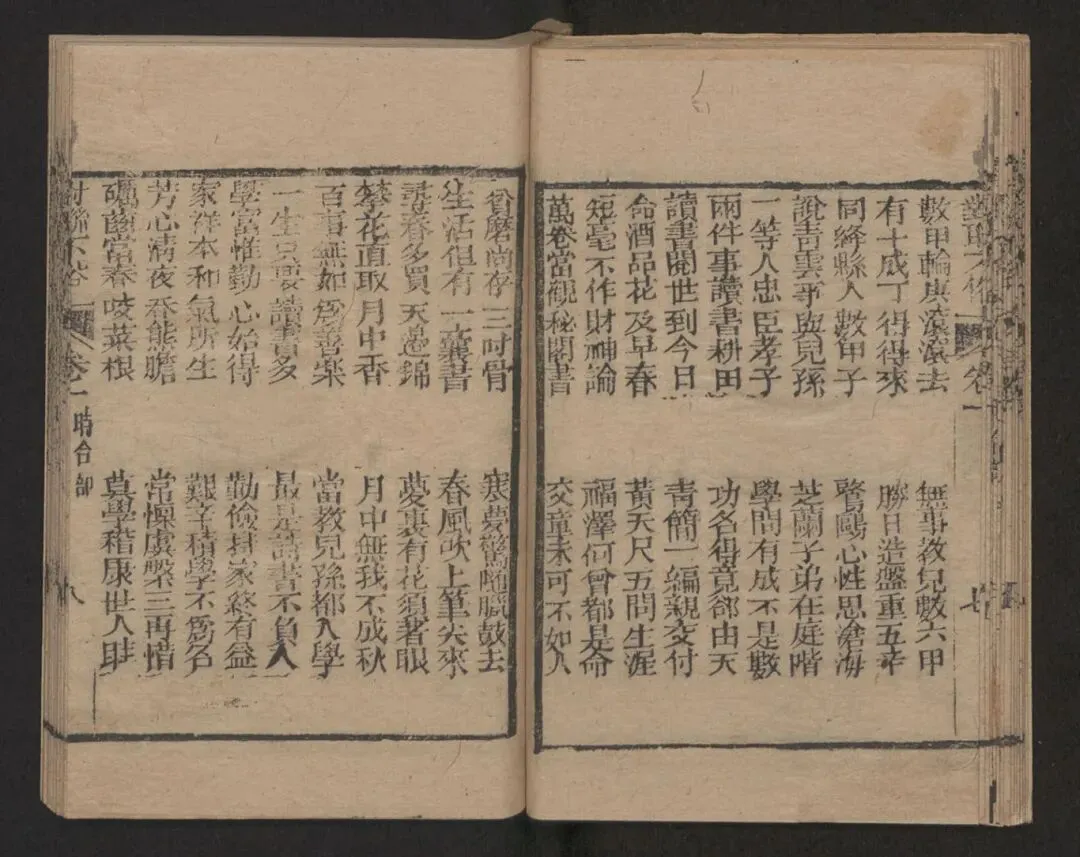 卷一 七
數甲輪庚滾滾去 無事教兒數六甲
有十成丁得得來 勝日造盤重五辛
同絳縣人數甲子 鷺鷗心性思滄海
說青雲事與兒孫 芝蘭子弟在庭階
一等人忠臣孝子 學問有成不是數
兩件事讀書耕田 功名得竟卻由天
讀書閱世到今日 青簡一編親交付
命酒品花及早春 黃天尺五問生涯
短毫不作財神論 福澤何曾都是命
萬卷當觀秘閣書 交章未可不如人
磨尚存三吋骨 寒夢驚隨臘鼓去
生活但有一囊書 春風吹上筆尖來
尋春多買天邊錦 夢裏有花須著眼
攀花直取月中香 月中無我不成秋
百事無如為善樂 當教兒孫都入學
一生只要讀書多 最是讀書不負人
學富惟勤心始得 勤儉持家終有益
家祥本和氣所生 艱辛積學不為名
芳心清夜香能膽 常懍虞槃三再惜
礪齒當春咬菜根 莫學稽康世人
卷一 時令部 八